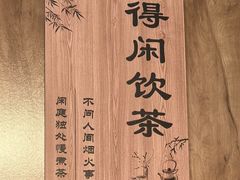 得闲饮茶
不问人间烟火事
闲庭独处慢煮茶